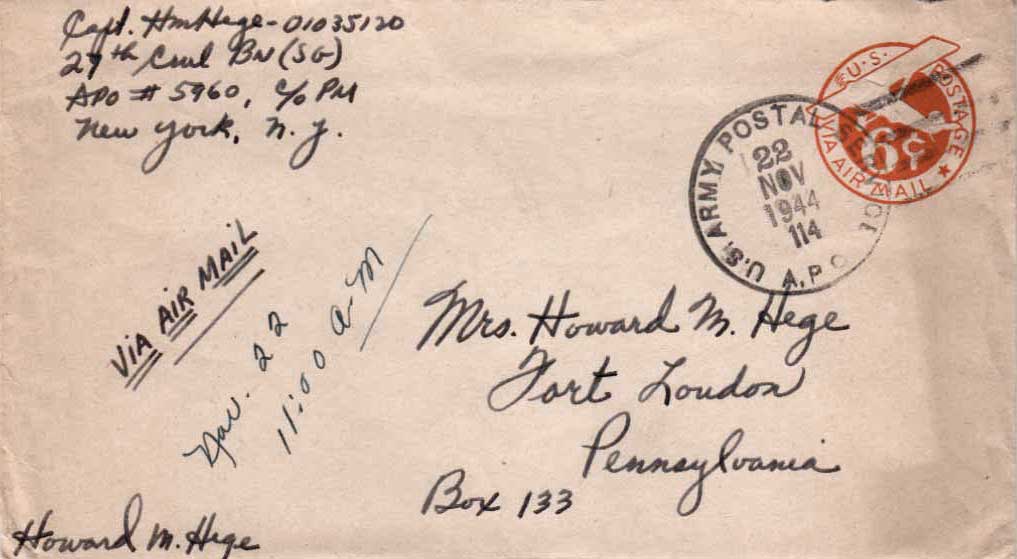 Capt. HM Hege - 01035120
27th Cml BN (SG)
APO # 5960, c/o PM
New York, N. Y.
U.S. POSTAGE
VIA AIR MAIL
6¢
U.S. ARMY POSTAL SERVICE
22
NOV
1944
114
A.P.O.
VIA AIR MAIL
Nov. 22
11:00 A-M
Mrs. Howard M. Hege
Fort Loudon
Pennsylvania
Box 133
Howard M. Hege